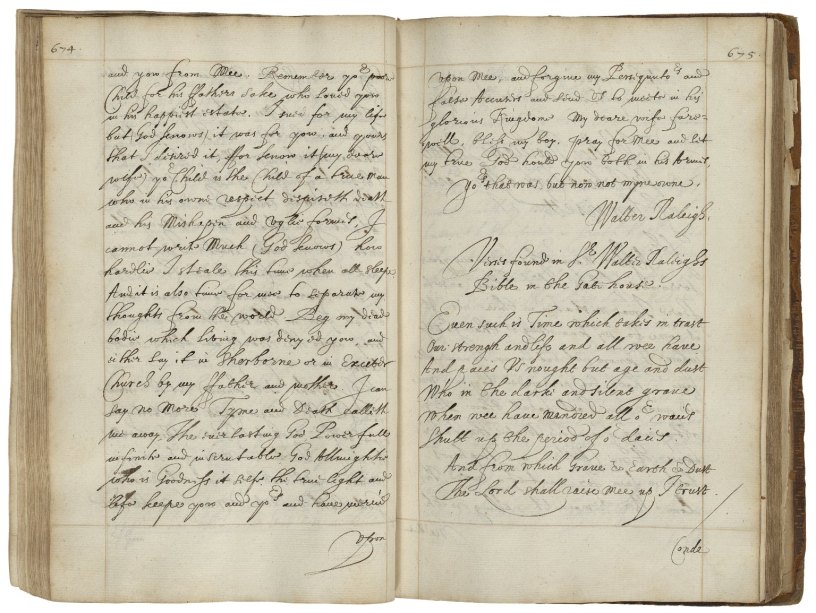 674.
and yow from Mee. Remember yor poor
Child for his fathers sake who loved yow
in his happiest estate. I sued for my life
but (God knows) it was for yow, and yours
that I desired it, ffor know it (my deare
wyfe) yor Child is the Child of a true Man
who in his owne respect dispiseth death
and his Mishapin and uglie formes. I
cannot write Much (God knows) how
hardlie I steale this time when all sleepe
And it is also time for mee to seperate my
thoughts from the world. Beg my dead
bodie which living was denyed yow, and
either lay it in Sherborne or in Exceter
Church by my ffather and mother I can
say no More Tyme and Death calleth
me away. The everlasting God Powerfull
infinite and inscrutable God Allmightie
who is Goodness it selfe the true light and
life keepe yow and yors and have mercie
Upon
675.
Upon Mee, and forgive my Persiquutors and
false Accusers and send us to meete in his
glorious Kingdome My deare wife fare=
well, bless my boy. pray for Mee and let
my true God hould yow both in his Armes.
Yors that was, but now not myne owne.
Walter Raleigh.
Verses found in Sr. Walter Raleighs
Bible in the Gate house.
Even such is Time which takes in trust
Our strength and life and all wee have
And paies us nought but age and dust
Who in the darke and silent grave
When wee have wandred all or waies
Shutt up the period of or daies.
And from which Grave & Earth & Dust
The Lord shall raise Mee up I trust.
Conde